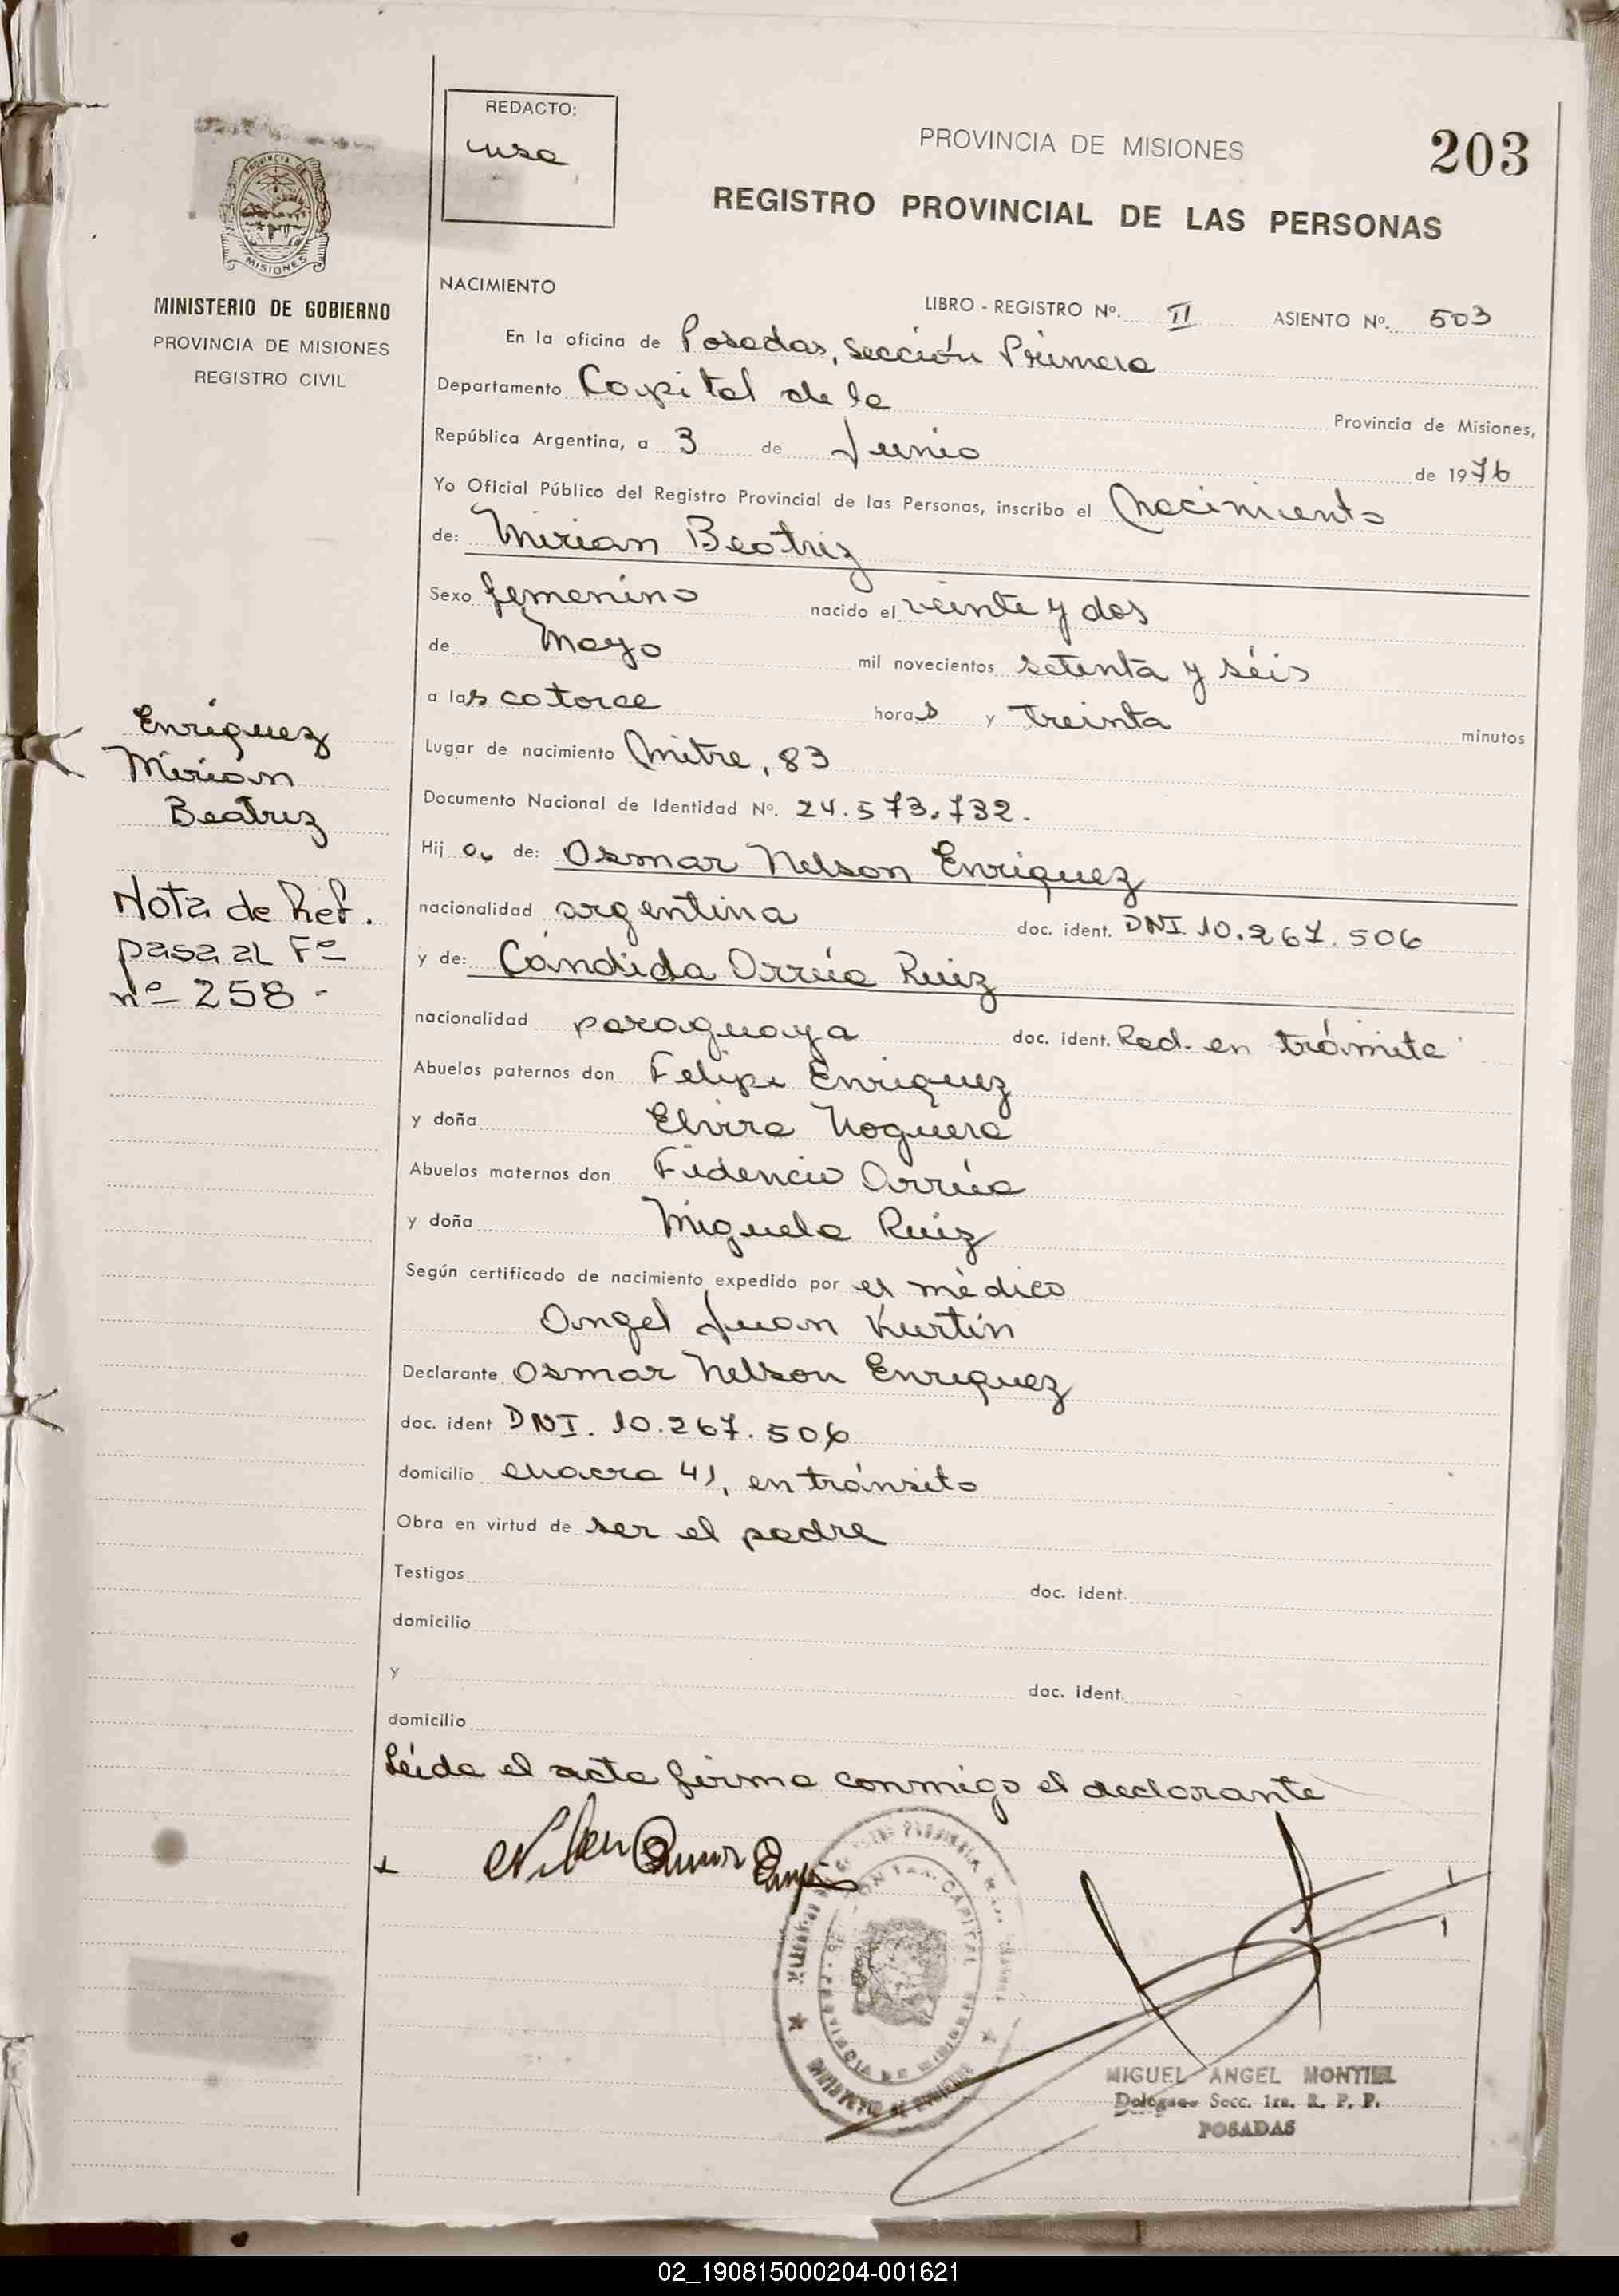 REDACTO:
PROVINCIA DE MISIONES
203
REGISTRO PROVINCIAL DE LAS PERSONAS
PROVINCIA DE
MISIONES
MINISTERIO DE GOBIERNO
PROVINCIA DE MISIONES
REGISTRO CIVIL
NACIMIENTO
LIBRO - REGISTRO Nº. II ASIENTO Nº. 503
En la oficina de Posadas, sección Primera
Departamento Capital de la Provincia de Misiones,
República Argentina, a 3 de Junio de 1976
Yo Oficial Público del Registro Provincial de las Personas, inscribo el Nacimiento
de: Mirian Beatriz
Sexo femenino nacido el veinte y dos
de Mayo mil novecientos setenta y séis
a las catorce horas y treinta minutos
Lugar de nacimiento Mitre, 83
Documento Nacional de Identidad Nº. 24.573.732.
Hij a. de: Osmar Nelson Enriquez
nacionalidad argentina doc. ident. DNI. 10.267.506
y de: Cándida Orrúa Ruiz
nacionalidad paraguaya doc. ident. Rad. en trámite
Abuelos paternos don Felipe Enriquez
y doña Elvira Noguera
Abuelos maternos don Fidencio Orrúa
y doña Miguela Ruiz
Según certificado de nacimiento expedido por el médico
Angel Juan Kurtin
Declarante Osmar Nelson Enriquez
doc. ident DNI. 10.267.506
domicilio chacra 41, en tránsito
Obra en virtud de ser el padre
Testigos doc. ident.
domicilio
y doc. ident.
domicilio
Leida el acta firma conmigo el declarante
Enriquez
Mirian
Beatriz
Nota de Ref.
pasa al Fº
nº 258 -
MIGUEL ANGEL MONTIEL
Delegado Secc. 1ra. R. P. P.
POSADAS
02_190815000204-001621